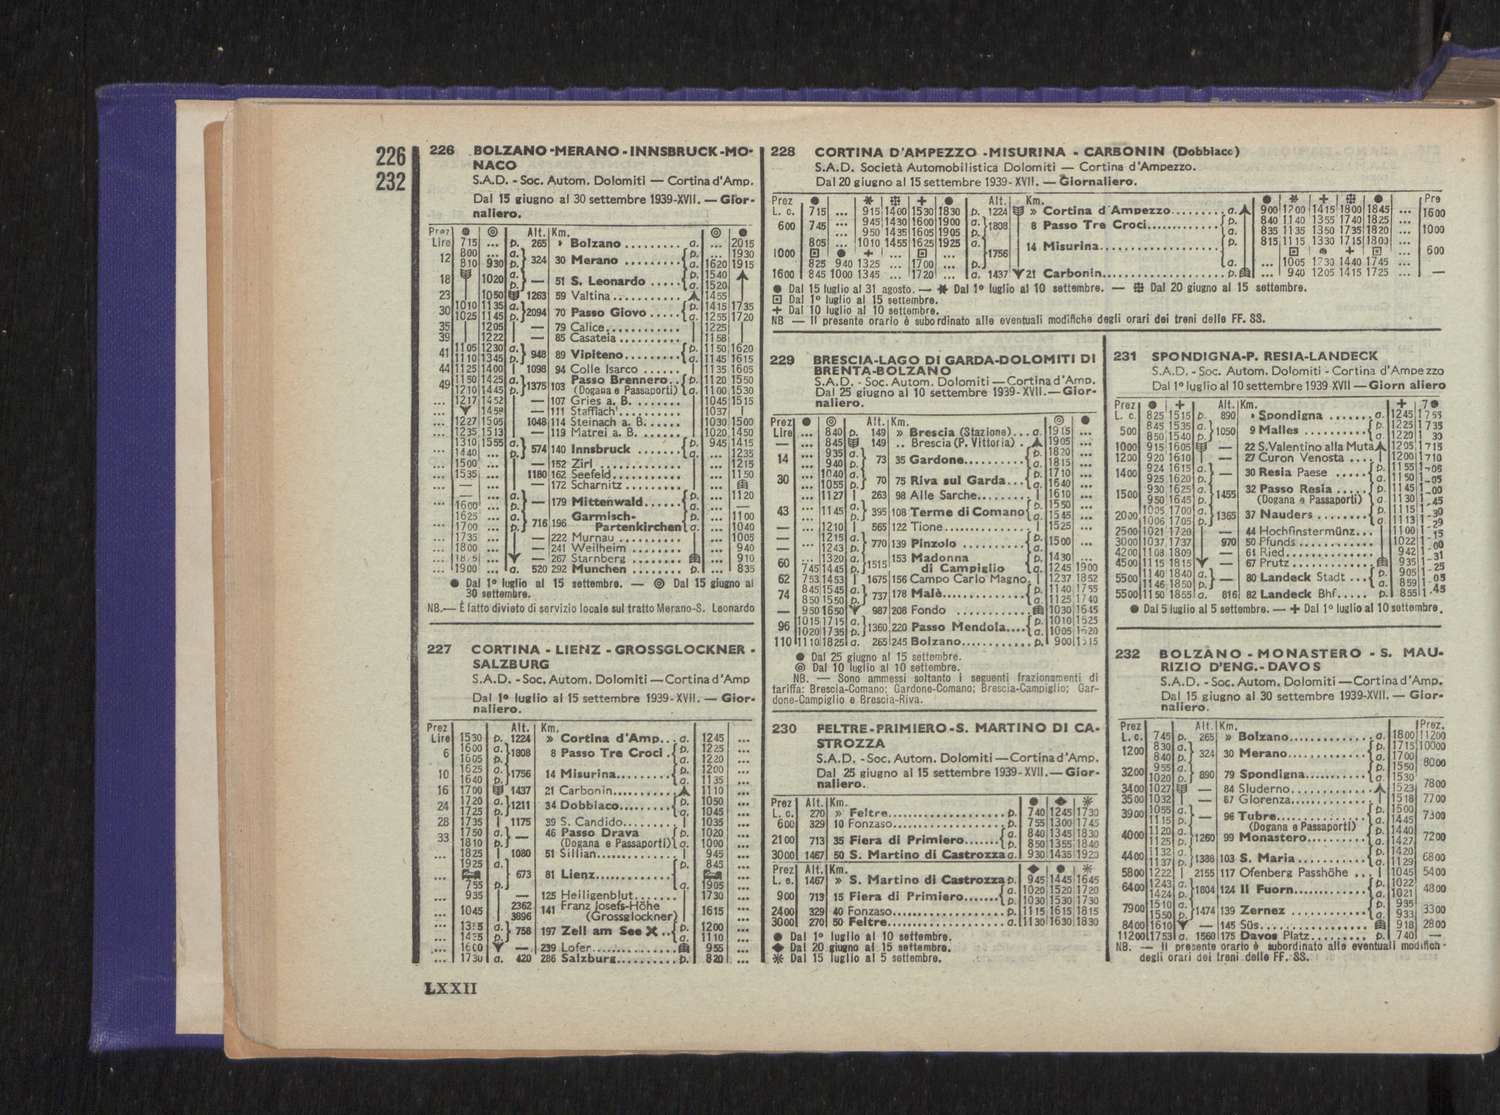 226
232
226 BOLZANO-MERANO-INNSBRUCK-MO-
NACO
S.A.D. - Soc. Autom. Dolomiti — Cortina d'Amp.
Dal 15 giugno al 30 settembre 1939-XVII. — Gior-
naliero.
Prez Alt. Km.
Lire 715 ... p. 265 » Bolzano a. ... 2015
12 800 ... a. 324 30 Merano p. ... 1930
810 930 p. a. 1620 1915
18 1020 a. p. — 51 S. Leonardo p. 1540
a. 1520
23 1050 1263 59 Valtina 1455
30 1010 1135 a. 2094 70 Passo Giovo p. 1415 1735
1025 1145 p. a. 1255 1720
35 | 1205 — 79 Calice 1225 |
39 | 1222 — 85 Casateia 1158 |
41 1105 1230 a. 948 89 Vipiteno p. 1150 1620
1110 1345 p. a. 1145 1615
44 1125 1400 | 1098 94 Colle Isarco 1135 1605
49 1150 1425 a. 1375 103 Passo Brennero p. 1120 1550
1210 1445 p. (Dogana e Passaporti) a. 1100 1530
... 1217 1452 | — 107 Gries a. B. 1045 1515
... 1458 | — 111 Stafflach 1037 |
... 1227 1505 | 1048 114 Steinach a. B. 1030 1500
... 1235 1513 | — 119 Matrei a. B. 1020 1450
... 1310 1555 a. 574 140 Innsbruck p. 945 1415
1440 ... p. a. ... 1235
... 1500 ... | — 152 Zirl ... 1215
... 1535 ... | 1180 162 Seefeld ... 1150
... — ... — 172 Scharnitz ...
... — ... a. — 179 Mittenwald p. ... 1120
1600 ... p. a. ... —
... 1625 ... a. 716 196 Garmisch- p. ... 1100
... 1700 ... p. Partenkirchen a. ... 1040
... 1735 ... | — 222 Murnau ... 1005
... 1800 ... | — 241 Weilheim ... 940
... ... — 267 Starnberg ... 910
... 1900 ... a. 520 292 Munchen p. ... 835
● Dal 1º luglio al 15 settembre. — ◎ Dal 15 giugno al
30 settembre.
NB.— È fatto divieto di servizio locale sul tratto Merano-S. Leonardo
227 CORTINA - LIENZ - GROSSGLOCKNER -
SALZBURG
S.A.D. - Soc. Autom. Dolomiti — Cortina d'Amp
Dal 1º luglio al 15 settembre 1939-XVII. — Gior-
naliero.
Prez Alt. Km.
Lire 1530 p. 1224 » Cortina d'Amp. a. 1245 ...
6 1600 a. 1808 8 Passo Tre Croci p. 1225 ...
1605 p. a. 1220 ...
10 1625 a. 1756 14 Misurina p. 1200 ...
1640 p. a. 1135 ...
16 1700 1437 21 Carbonin 1110 ...
24 1720 a. 1211 34 Dobbiaco p. 1050 ...
1725 p. a. 1045 ...
28 1735 | 1175 39 S. Candido | 1035 ...
33 1750 a. — 46 Passo Drava p. 1020 ...
1810 p. (Dogana e Passaporti) a. 1000 ...
... 1825 | 1080 51 Sillian | 945 ...
... 1925 a. 673 81 Lienz p. 845 ...
755 p. a. 1905 ...
... 935 | — 125 Heiligenblut | 1730 ...
... 1045 2362 141 Franz Josefs-Höhe 1615 ...
3696 (Grossglockner)
... a. 758 197 Zell am See p. 1200 ...
... p. a. 1110 ...
... 1600 — 239 Lofer 955 ...
... 1730 a. 420 286 Salzburg p. 820 ...
LXXII
228 CORTINA D'AMPEZZO -MISURINA - CARBONIN (Dobbiaco)
S.A.D. Società Automobilistica Dolomiti — Cortina d'Ampezzo.
Dal 20 giugno al 15 settembre 1939-XVII. — Giornaliero.
Prez ● ✻ ✚ ● Alt. Km. ● ✻ + ● Pre
L. c. 715 ... 915 1400 1530 1830 p. 1224 » Cortina d'Ampezzo a. 900 1200 1415 1800 1845 ... 1600
600 745 ... 945 1430 1600 1900 a. 1808 8 Passo Tre Croci p. 840 1140 1355 1740 1825 ... 1000
... 950 1435 1605 1905 p. a. 835 1135 1350 1735 1820 ...
805 ... 1010 1455 1625 1925 a. 1756 14 Misurina p. 815 1115 1330 1715 1800 ... 600
1000
825 940 1325 ... 1700 ... p. a. ... 1005 1730 1440 1745 ...
1600 845 1000 1345 ... 1720 ... a. 1437 21 Carbonin p. ... 940 1205 1415 1725 ... —
● Dal 15 luglio al 31 agosto. — ✻ Dal 1º luglio al 10 settembre. — Dal 20 giugno al 15 settembre.
⊡ Dal 1º luglio al 15 settembre.
+ Dal 10 luglio al 10 settembre.
NB — Il presente orario è subordinato alle eventuali modifiche degli orari dei treni delle FF. SS.
229 BRESCIA-LAGO DI GARDA-DOLOMITI DI
BRENTA-BOLZANO
S.A.D. - Soc. Autom. Dolomiti — Cortina d'Amp.
Dal 25 giugno al 10 settembre 1939-XVII.—Gior-
naliero.
Prez ● ◎ Alt. Km. ◎ ●
Lire ... 840 p. 149 » Brescia (Stazione) a. 1915 ...
— ... 845 149 .. Brescia (P. Vittoria) 1905 ...
14 ... 935 a. 73 35 Gardone p. 1820 ...
... 940 p. a. 1815 ...
30 ... 1040 a. 70 75 Riva sul Garda p. 1710 ...
... 1055 p. a. 1640 ...
... 1127 | 263 98 Alle Sarche | 1610 ...
43 ... 1145 a. p. 395 108 Terme di Comano p. 1550 ...
a. 1545 ...
— ... 1210 | 565 122 Tione | 1525 ...
— ... 1215 a. 770 139 Pinzolo p. 1500 ...
... 1243 p. a.
60 ... 1320 a. 1515 153 Madonna p. 1430 ...
745 1445 p. di Campiglio a. 1245 1900
62 753 1453 | 1675 156 Campo Carlo Magno 1237 1852
74 845 1545 a. 737 178 Malè p. 1140 1755
850 1550 p. a. 1125 1740
— 950 1650 987 208 Fondo 1030 1645
96 1015 1715 a. 1360 220 Passo Mendola p. 1010 1625
1020 1735 p. a. 1005 1620
110 1110 1825 a. 265 245 Bolzano p. 900 1515
● Dal 25 giugno al 15 settembre.
◎ Dal 10 luglio al 10 settembre.
NB. — Sono ammessi soltanto i seguenti frazionamenti di
tariffa: Brescia-Comano; Gardone-Comano; Brescia-Campiglio; Gar-
done-Campiglio e Brescia-Riva.
230 FELTRE-PRIMIERO-S. MARTINO DI CA-
STROZZA
S.A.D. -Soc. Autom. Dolomiti —Cortina d'Amp.
Dal 25 giugno al 15 settembre 1939-XVII.—Gior-
naliero.
Prez Alt. Km. ● ◆ ✻
L. c. 270 » Feltre p. 740 1245 1730
600 329 10 Fonzaso 755 1300 1745
2100 713 35 Fiera di Primiero a. 840 1345 1830
p. 850 1355 1840
3000 1467 50 S. Martino di Castrozza a. 930 1435 1920
Prez. Alt. Km. ◆ ● ✻
L. c. 1467 » S. Martino di Castrozza p. 945 1445 1645
900 713 15 Fiera di Primiero a. 1020 1520 1720
p. 1030 1530 1730
2400 329 40 Fonzaso 1115 1615 1815
3000 270 50 Feltre a. 1130 1630 1830
● Dal 1º luglio al 10 settembre.
◆ Dal 20 giugno al 15 settembre.
✻ Dal 15 luglio al 5 settembre.
231 SPONDIGNA-P. RESIA-LANDECK
S.A.D. - Soc. Autom. Dolomiti - Cortina d'Ampezzo
Dal 1º luglio al 10 settembre 1939 XVII — Giorn aliero
Prez ● + Alt. Km. + ●
L. c. 825 1515 p. 890 » Spondigna a. 1245 1755
500 845 1535 a. 1050 9 Malles p. 1225 1735
850 1540 p. a. 1220
1000 915 1605 — 22 S.Valentino alla Muta 1205 1715
1200 920 1610 | — 27 Curon Venosta 1200 1710
1400 924 1615 a. — 30 Resia Paese p. 1155
925 1620 p. a. 1150
1500 930 1625 a. 1455 32 Passo Resia p. 1145
950 1645 p. (Dogana e Passaporti) a. 1130
2000 1005 1700 a. 1365 37 Nauders p. 1115
1006 1705 p. a. 1113
2500 1021 1720 | — 44 Hochfinstermünz 1100
3000 1037 1737 | 970 50 Pfunds 1022
4200 1108 1809 | — 61 Ried 942
4500 1115 1815 — 67 Prutz 935
5500 1140 1840 a. — 80 Landeck Stadt p. 905
1146 1850 p. a. 859
5500 1150 1855 a. 816 82 Landeck Bhf. p. 855
● Dal 5 luglio al 5 settembre. — + Dal 1º luglio al 10 settembre.
232 BOLZANO - MONASTERO - S. MAU-
RIZIO D'ENG.- DAVOS
S.A.D. - Soc. Autom. Dolomiti — Cortina d'Amp.
Dal 15 giugno al 30 settembre 1939-XVII. — Gior-
naliero.
Prez Alt. Km. Prez.
L. c. 745 p. 265 » Bolzano a. 1800 11200
1200 830 a. 324 30 Merano p. 1715 10000
840 p. a. 1700
3200 955 a. 890 79 Spondigna p. 1550 8000
1020 p. a. 1530
3400 1027 — 84 Sluderno 1523 7800
3500 1032 | — 87 Glorenza 1518 7700
3900 1055 a. — 96 Tubre p. 1500 7300
1115 p. (Dogana e Passaporti) a. 1445
4000 1120 a. 1260 99 Monastero p. 1440 7200
1125 p. a. 1427
4400 1132 a. 1386 103 S. Maria p. 1420 6800
1137 p. a. 1129
5800 1222 | 2155 117 Ofenberg Passhöhe | 1045 5400
6400 1243 a. 1804 124 Il Fuorn p. 1022 4800
1424 p. a. 1021
7900 1510 a. 1474 139 Zernez p. 935 3300
1550 p. a. 933
8400 1610 — 145 Süs 918 2800
11200 1753 a. 1560 175 Davos Platz p. 740 —
NB. — Il presente orario è subordinato alle eventuali modifich-
degli orari dei treni delle FF. SS.